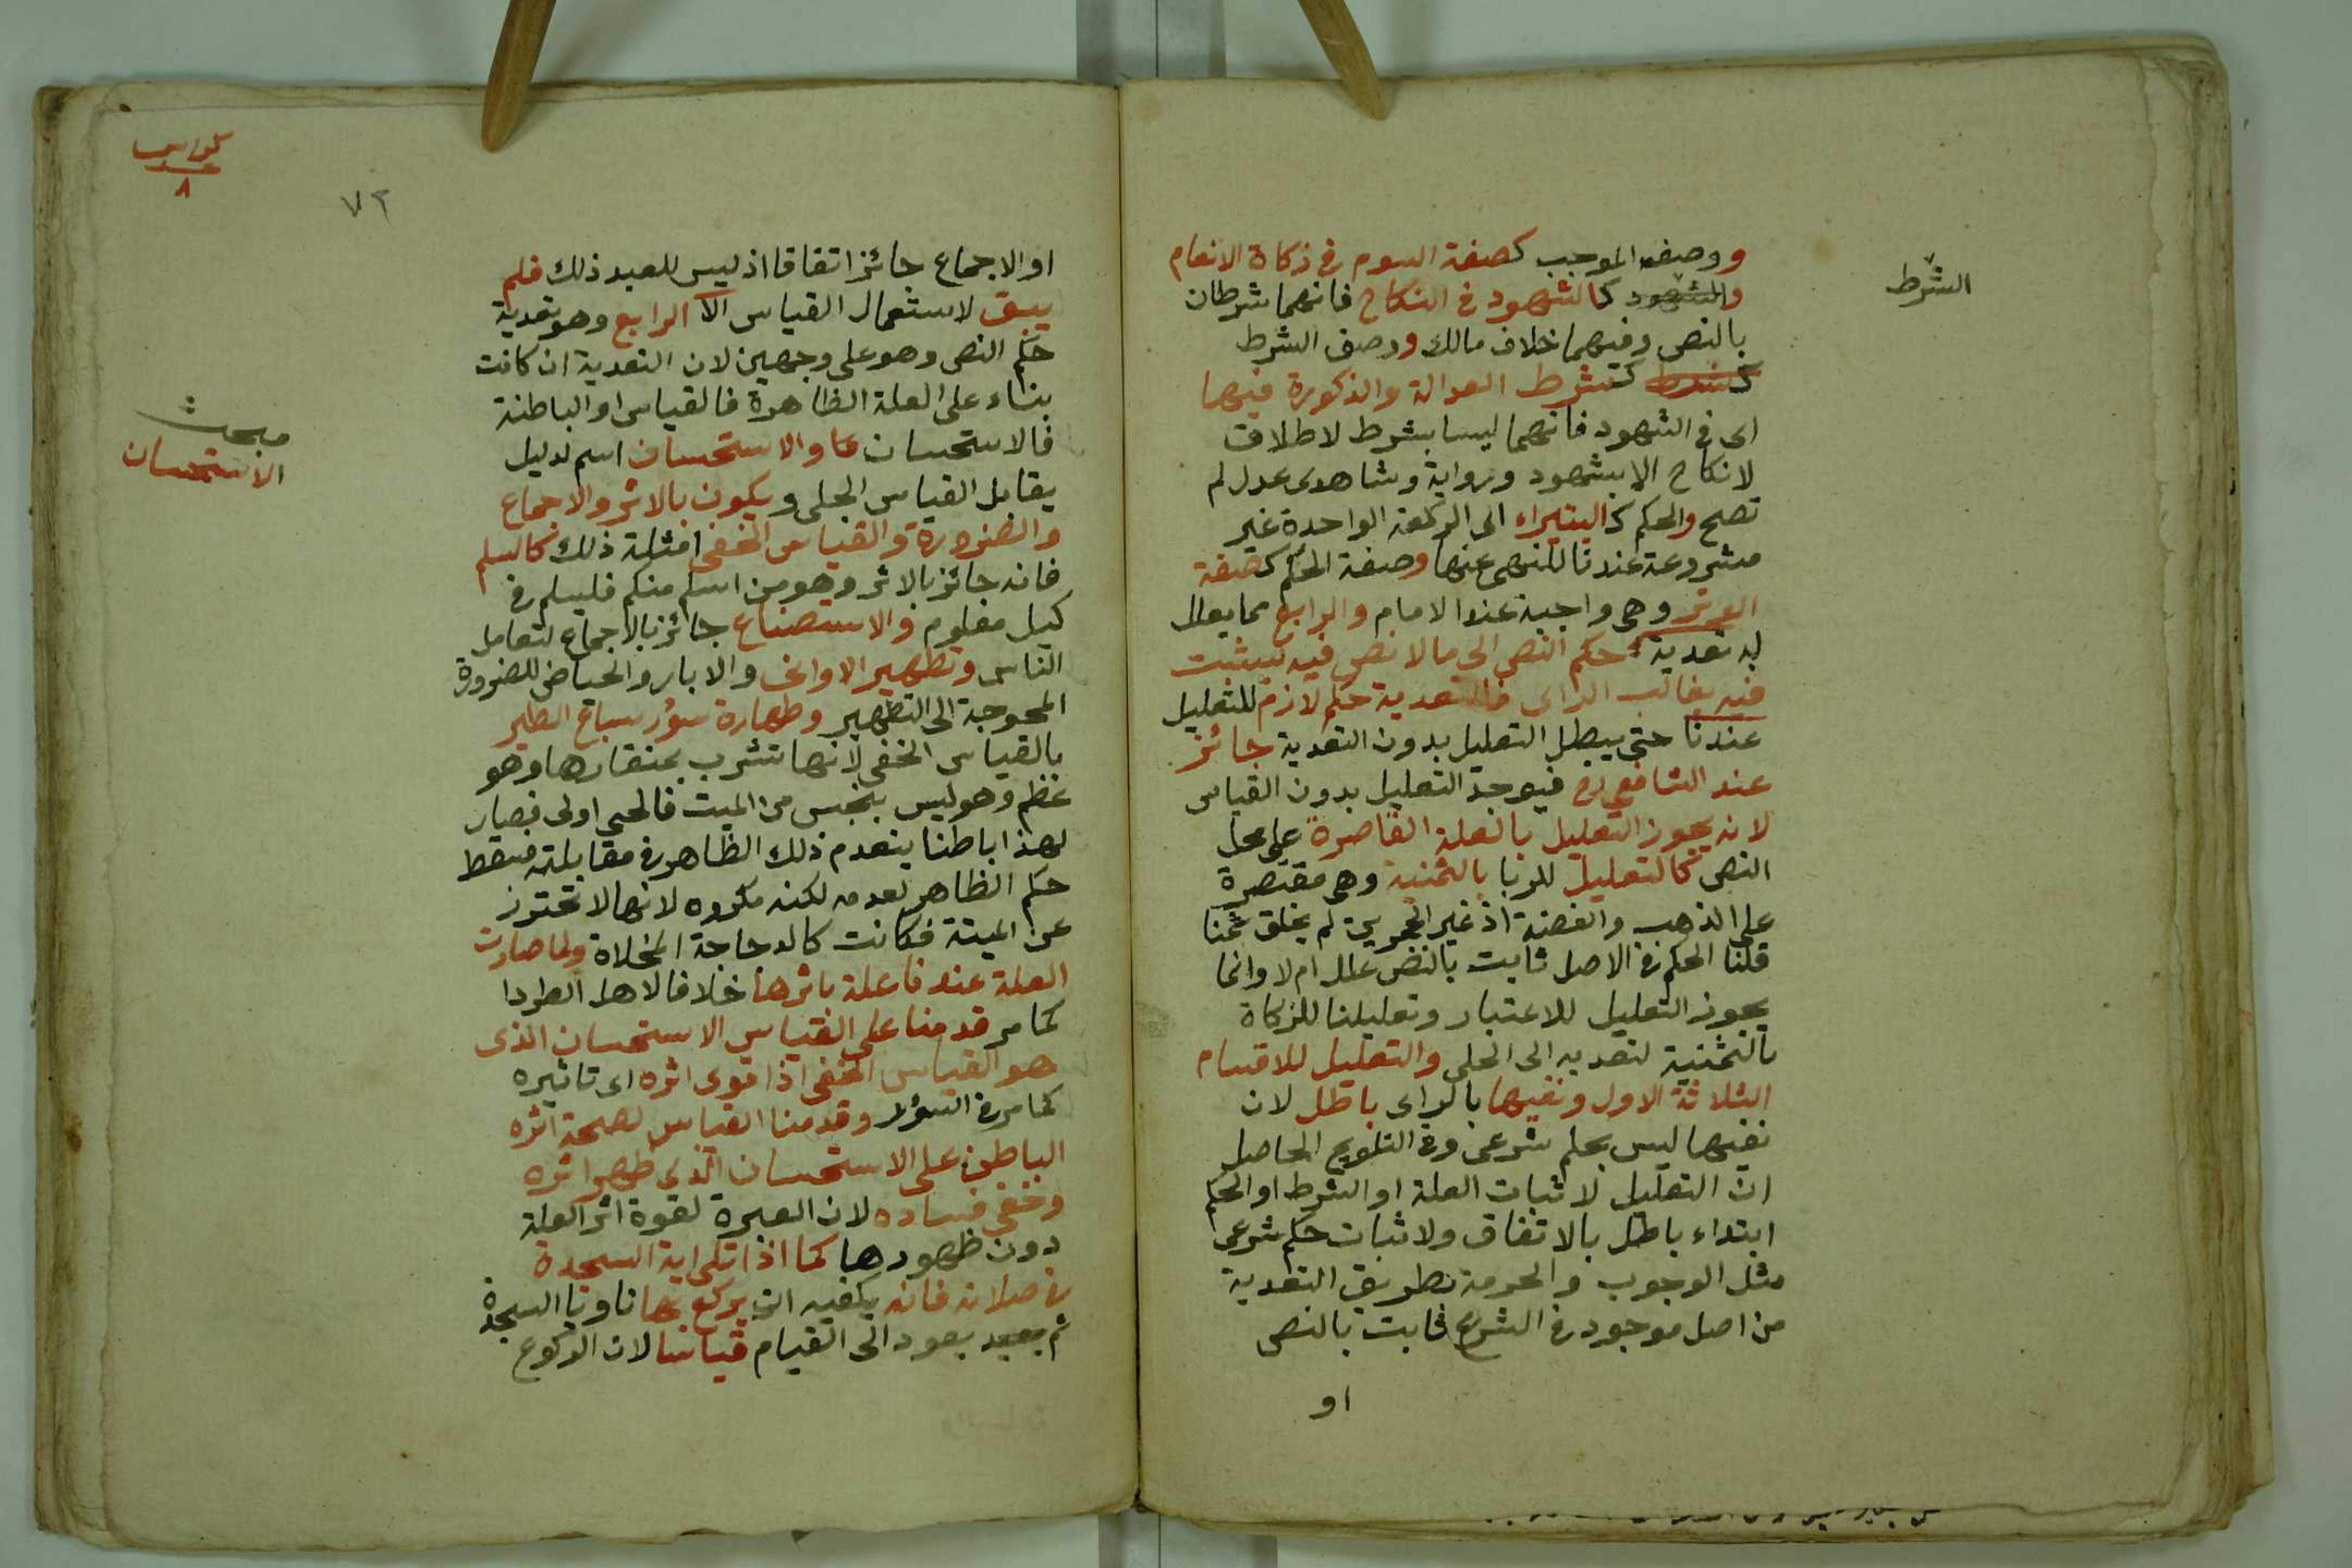 ووصفه الموجب كصفة السوم فى زكاة الانعام
الشرط
والشهود كالشهود فى النكاح فانهما شرطان
بالنص وفيهما خلاف مالك ووصف الشرط
كشرط كشرط العدالة والذكورة فيها
اى فى الشهود فانهما ليسا بشرط لاطلاق
لا نكاح الا بشهود ورواية وشاهدى عدل لم
تصح والحكم كالبتيراء اى الركعة الواحدة غير
مشروعة عندنا للنهى عنها وصفة الحكم كصفة
الوتر وهى واجبة عند الامام والرابع مما يعلل
له تعدية حكم النص الى ما لا نص فيه ليثبت
فيه بغالب الراى فالتعدية حكم لازم للتعليل
عندنا حتى يبطل التعليل بدون التعدية جائز
عند الشافعى رح فيوجد التعليل بدون القياس
لانه يجوز التعليل بالعلة القاصرة على محل
النص كالتعليل للربا بالثمنية وهى مقتصرة
على الذهب والفضة اذ غير الحجرين لم يخلق ثمنا
قلنا الحكم فى الاصل ثابت بالنص علل ام لا وانما
يجوز التعليل للاعتبار وتعليلنا للزكاة
بالثمنية لتعديه الى الحلى والتعليل للاقسام
الثلاثة الاول ونفيها بالراى باطل لان
نفيها ليس بحكم شرعى وفى التلويح الحاصل
ان التعليل لاثبات العلة او الشرط او الحكم
ابتداء باطل بالاتفاق ولاثبات حكم شرعى
مثل الوجوب والحرمة بطريق التعدية
من اصل موجود فى الشرع ثابت بالنص
او
كراس
عدد
٨
٧٢
او الاجماع جائز اتفاقا اذ ليس للعبد ذلك فلم
يبق لاستعمال القياس الا الرابع وهو تعدية
حكم النص وهو على وجهين لان التعدية ان كانت
بناء على العلة الظاهرة فالقياس او الباطنة
مبحث
الاستحسان
فالاستحسان والاستحسان اسم لدليل
يقابل القياس الجلى ويكون بالاثر والاجماع
والضرورة والقياس الخفى امثلة ذلك كالسلم
فانه جائز بالاثر وهو من اسلم منكم فليسلم فى
كيل معلوم والاستصناع جائز بالاجماع لتعامل
الناس وتطهير الاوانى والابار والحياض للضرورة
المحوجة الى التطهير وطهارة سؤر سباع الطير
بالقياس الخفى لانها تشرب بمنقارها وهو
عظم وهو ليس بنجس من الميت فالحى اولى فصار
لهذا باطنا ينعدم ذلك الظاهر فى مقابلته فسقط
حكم الظاهر لعدمه لكنه مكروه لانها لا تحترز
عن الميتة فكانت كالدجاجة المخلاة ولما صارت
العلة عندنا علة باثرها خلافا لاهل الطرد
كما مر قدمنا على القياس الاستحسان الذى
هو القياس الخفى اذا قوى اثره اى تاثيره
كما مر فى السؤر وقدمنا القياس لصحة اثره
الباطن على الاستحسان الذى ظهر اثره
وخفى فساده لان العبرة لقوة اثر العلة
دون ظهورها كما اذا تلى اية السجدة
فى صلاته فانه يكفيه ان يركع بها ناويا السجدة
ثم يعيد يعود الى القيام قياسا لان الركوع